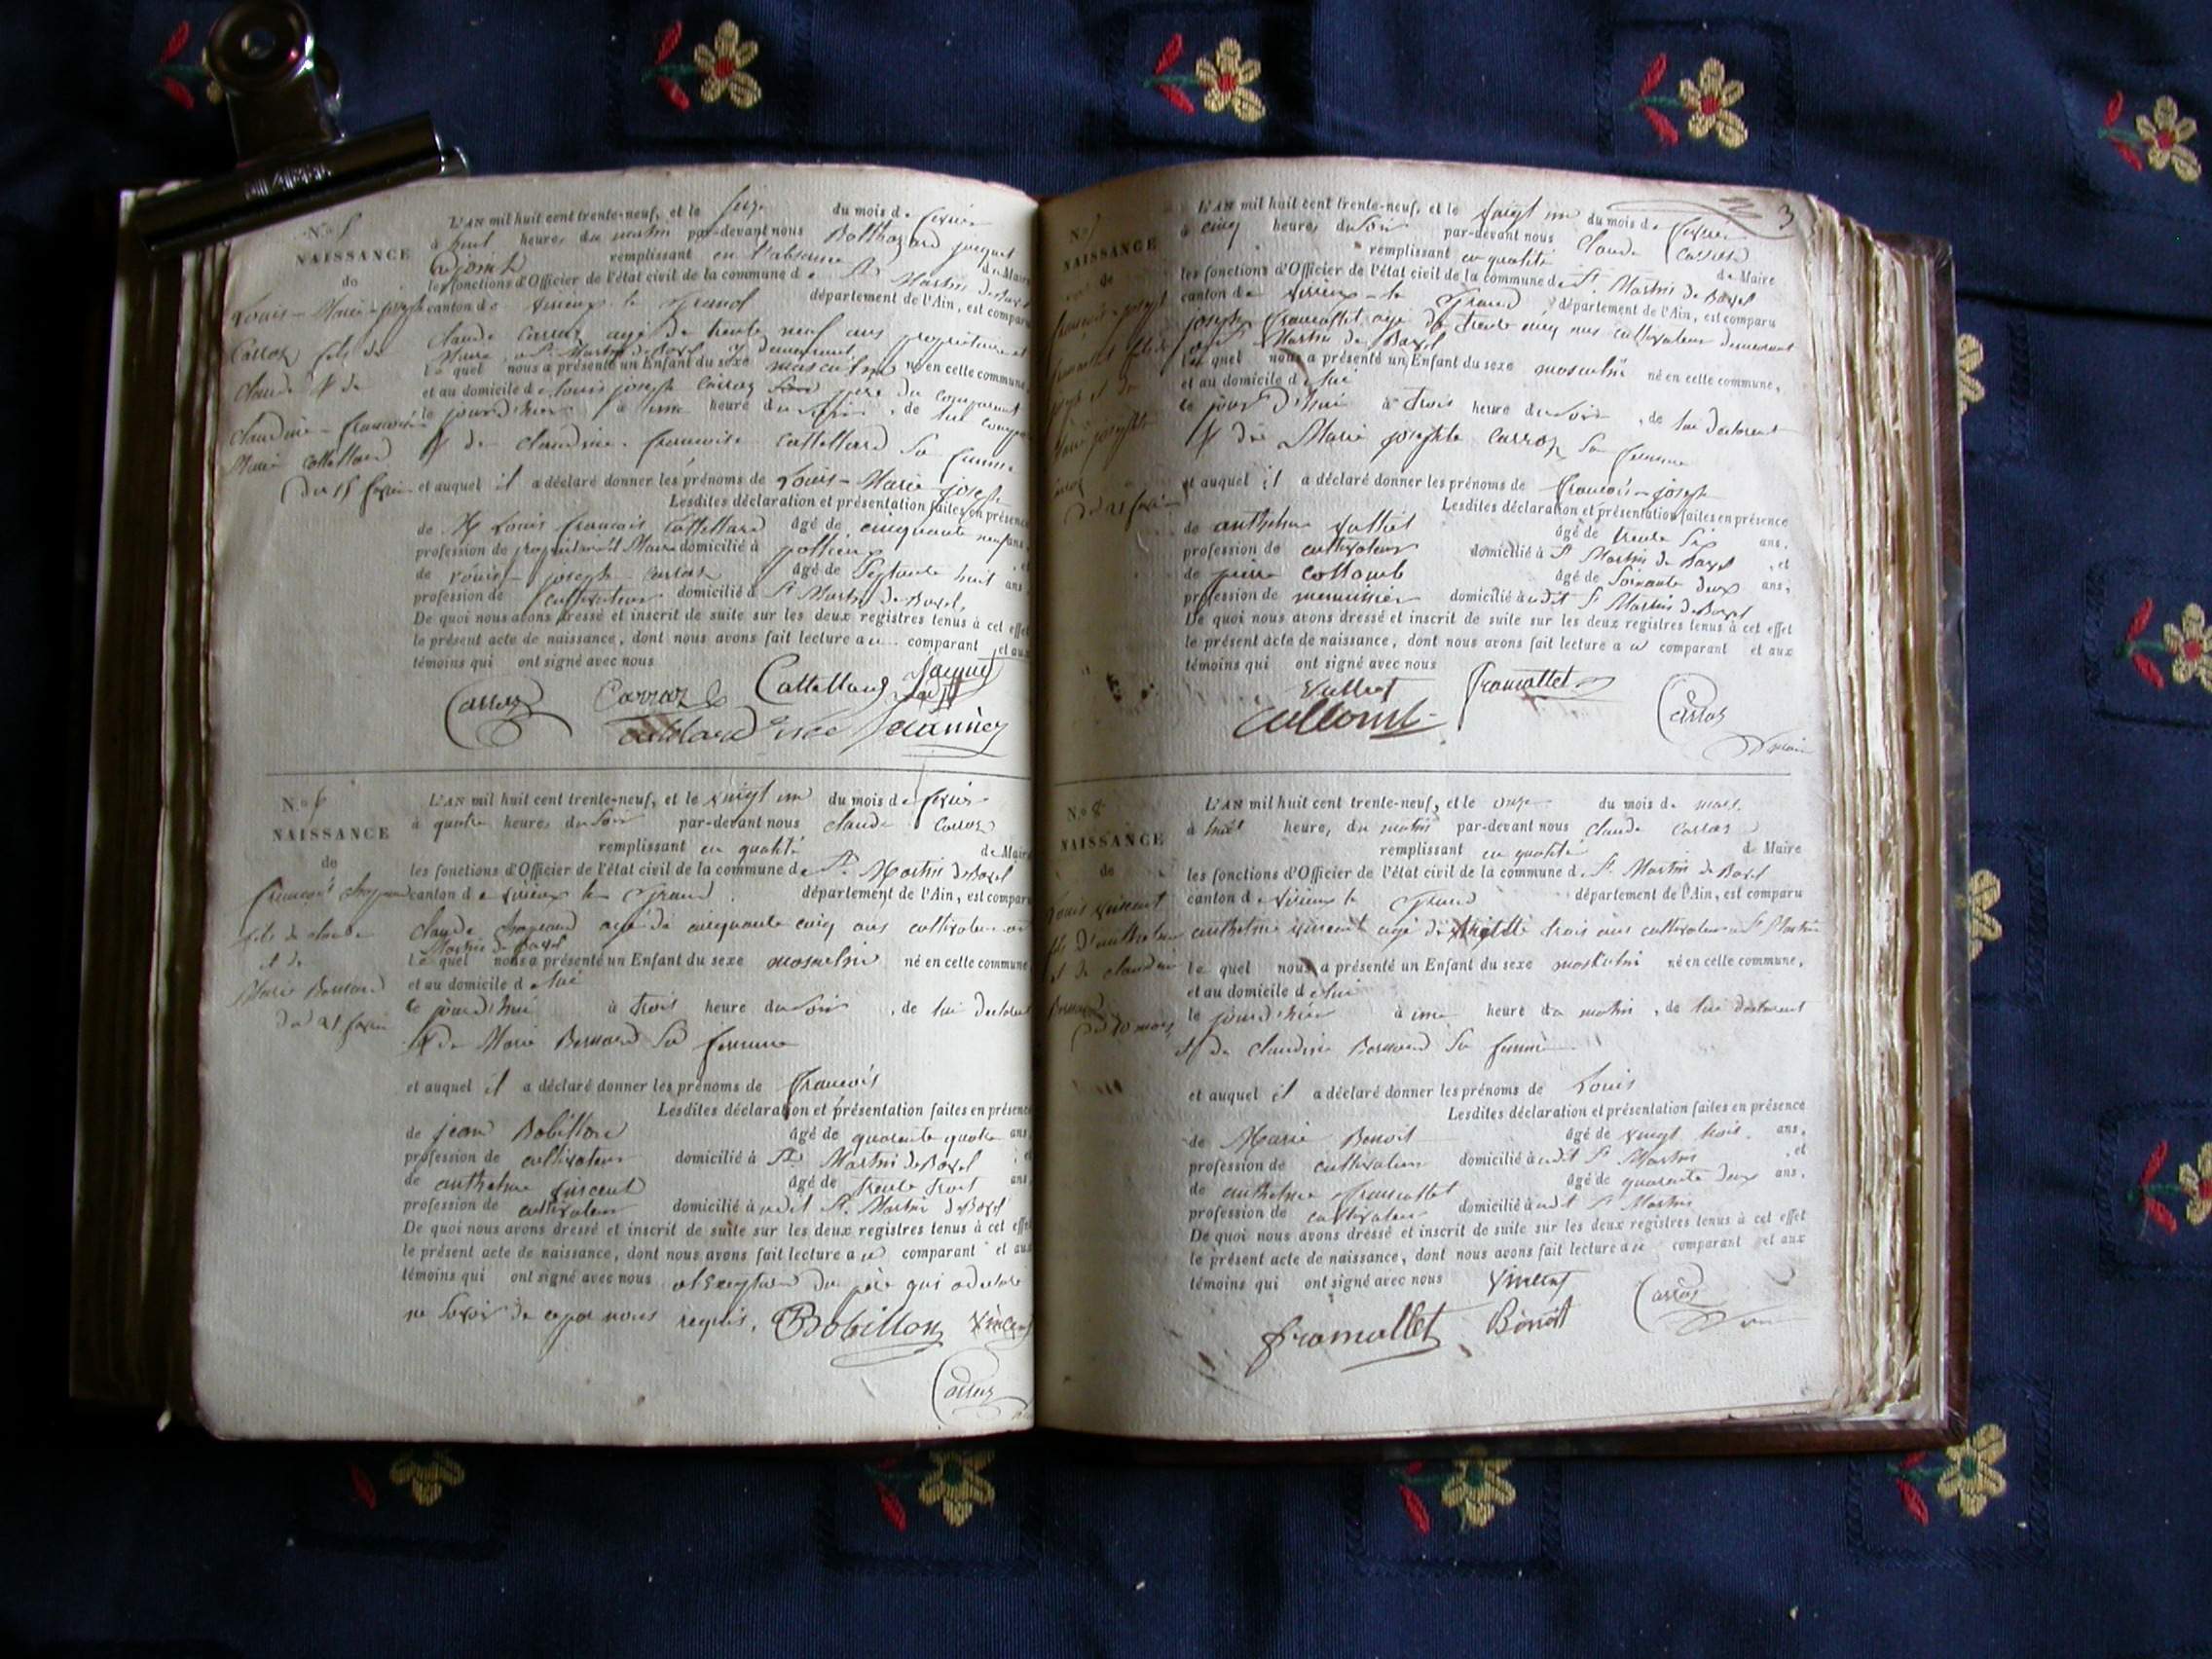 N.o 5
NAISSANCE
de
Louis-Marie-joseph
Carraz fils de
claude & de
claudine-francoise
Marie Cattelland
du 15 fevrier
L'AN mil huit cent trente-neuf, et le seize du mois de fevrier
à huit heures du matin par-devant nous Balthazard jacquet
adjoint remplissant en l'absence du Maire
les fonctions d'Officier de l'état civil de la commune de St Martin de Bavel
canton de virieux-le-Grand département de l'Ain, est comparu
claude Carraz agé de trente neuf ans propriétaire et
Maire a St Martin de Bavel y demeurant,
le quel nous a présenté un Enfant du sexe masculin né en cette commune
et au domicile de louis joseph Carraz père du comparant
le jour d'hier à une heure du de lui
& de claudine-francoise Cattelland sa femme
et auquel il a déclaré donner les prénoms de Louis-Marie-joseph
Lesdites déclaration et présentation faites en présence
de Mr Louis francois Cattelland âgé de cinquante neuf ans,
profession de propriétaire et Maire domicilié à pollieu, et
de Louis-joseph Carraz âgé de Septante huit ans
profession de cultivateur domicilié à St Martin de Bavel,
De quoi nous avons dressé et inscrit de suite sur les deux registres tenus à cet effet
le présent acte de naissance, dont nous avons fait lecture au comparant et aux
témoins qui ont signé avec nous
Carraz Carraz Cattelland Jacquet
N.o 6
NAISSANCE
de
francois
fils de claude
et de
Marie Bernard
du 21 fevrier
L'AN mil huit cent trente-neuf, et le vingt un du mois de fevrier
à quatre heures du soir par-devant nous claude Carraz
remplissant en qualité de Maire
les fonctions d'Officier de l'état civil de la commune de St Martin de Bavel
canton de virieux le Grand département de l'Ain, est comparu
claude agé de cinquante cinq ans cultivateur
Martin de Bavel
le quel nous a présenté un Enfant du sexe masculin né en cette commune
et au domicile de lui
le jourd'hui à trois heure du soir, de lui declarant
& de Marie Bernard sa femme
et auquel il a déclaré donner les prénoms de francois
Lesdites déclaration et présentation faites en présence
de jean Bobillon âgé de quarante quatre ans
profession de cultivateur domicilié à St Martin de Bavel ; et
de anthelme vincent âgé de trente trois ans
profession de cultivateur domicilié à udit St Martin de Bavel
De quoi nous avons dressé et inscrit de suite sur les deux registres tenus à cet effet
le présent acte de naissance, dont nous avons fait lecture au comparant et aux
témoins qui ont signé avec nous a l'exeption du père qui a declaré
ne savoir de ce par nous requis, Bobillon Vincent
Carraz
3
N.o 7
NAISSANCE
de
francois-joseph
fils de
joseph et de
Marie josephte
du 21 fevrier
L'AN mil huit cent trente-neuf, et le vingt un du mois de fevrier
à cinq heures du soir par-devant nous claude Carraz
remplissant en qualité de Maire
les fonctions d'Officier de l'état civil de la commune de St Martin de Bavel
canton de virieux-le Grand département de l'Ain, est comparu
joseph fromollet agé de trente cinq ans cultivateur demeurant
Martin de Bavel
le quel nous a présenté un Enfant du sexe masculin né en cette commune,
et au domicile de lui
le jour d'hui à trois heure du soir, de lui declarant
& de Marie josephte Carraz sa femme
et auquel il a déclaré donner les prénoms de francois-joseph
Lesdites déclaration et présentation faites en présence
de anthelme âgé de trente six ans,
profession de cultivateur domicilié à St Martin de Bavel, et
de pierre Collomb âgé de soixante deux ans,
profession de menuisier domicilié à udit St Martin de Bavel
De quoi nous avons dressé et inscrit de suite sur les deux registres tenus à cet effet
le présent acte de naissance, dont nous avons fait lecture au comparant et aux
témoins qui ont signé avec nous
fromollet
Carraz
N.o 8
NAISSANCE
de
Louis vincent
fils d'anthelme
et de claudine
Bernard
du 10 mars
L'AN mil huit cent trente-neuf, et le onze du mois de mars
à huit heure, du matin par-devant nous claude Carraz
remplissant en qualité de Maire
les fonctions d'Officier de l'état civil de la commune de St Martin de Bavel
canton de virieux le Grand département de l'Ain, est comparu
anthelme vincent agé de trente trois ans cultivateur a St Martin
le quel nous a présenté un Enfant du sexe masculin né en cette commune,
et au domicile de lui
le jour d'hier à une heure du matin, de lui declarant
& de claudine Bernard sa femme
et auquel il a déclaré donner les prénoms de Louis
Lesdites déclaration et présentation faites en présence
de Marie Benoit âgé de vingt trois ans,
profession de cultivateur domicilié à udit St Martin, et
de anthelme fromollet âgé de quarante deux ans,
profession de cultivateur domicilié à udit St Martin
De quoi nous avons dressé et inscrit de suite sur les deux registres tenus à cet effet
le présent acte de naissance, dont nous avons fait lecture au comparant et aux
témoins qui ont signé avec nous Vincent Carraz
fromollet Benoit